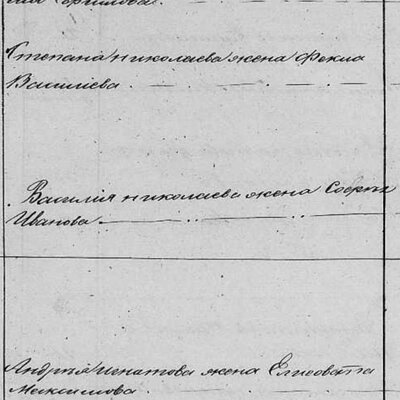 Ефимова.
Степана Николаева жена Фекла
Василiева
Василiя Николаева жена Софья
Иванова
Андрея Игнатова жена Елисовета
Максимова